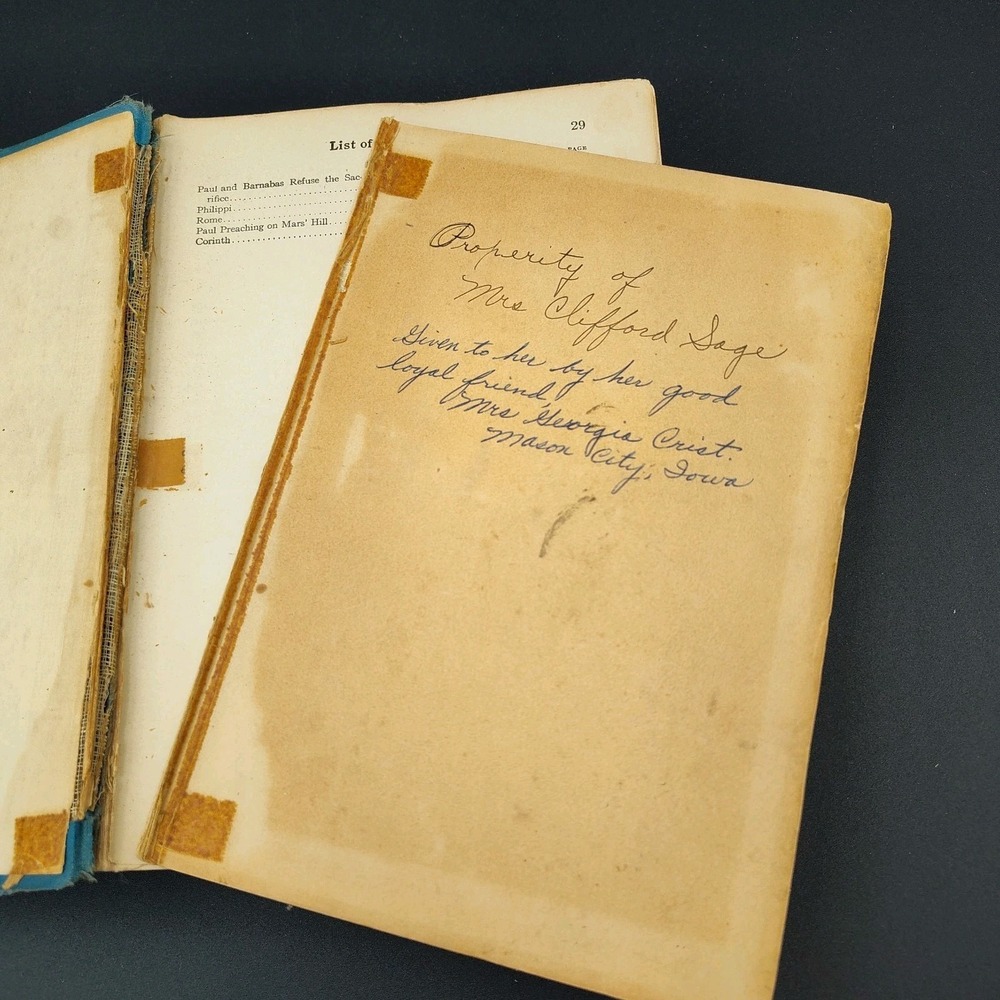 29
List of
PAGE
Paul and Barnabas Refuse the Sac-
rifice
Philippi
Rome
Paul Preaching on Mars' Hill
Corinth
Properity of
Mrs Clifford Sage
Given to her by her good
loyal friend
Mrs Georgia Crist.
Mason City, Iowa